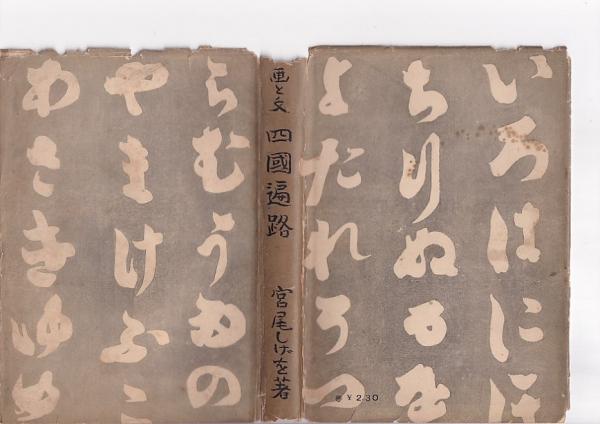 いろはにほ
ちりぬるを
よたれそつ
¥2.30
画と文 四國遍路 宮尾しげを著
らむうゐの
やまけふこ
あさきゆめ